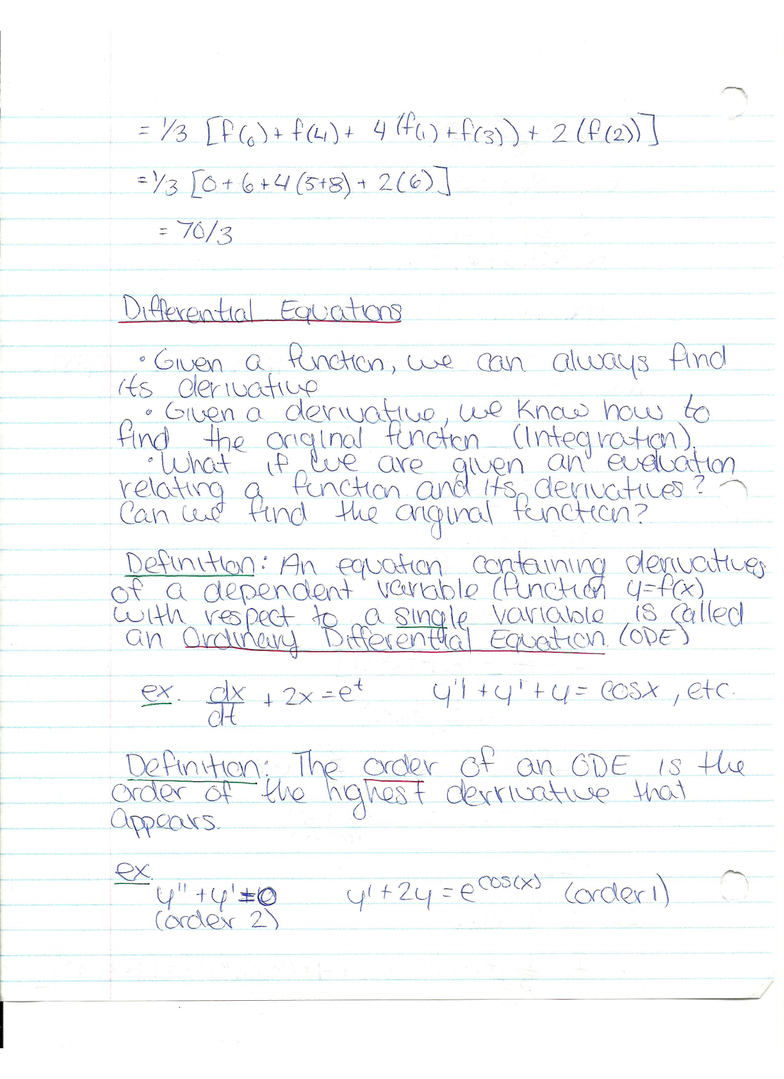 = 1/3 [f(0) + f(4) + 4 (f(1) + f(3)) + 2 (f(2))]
= 1/3 [0 + 6 + 4 (5+8) + 2 (6)]
= 70/3
Differential Equations
• Given a function, we can always find
its derivative
• Given a derivative, we know how to
find the original function (integration).
• What if we are given an evaluation
relating a function and its derivatives?
Can we find the original function?
Definition: An equation containing derivatives
of a dependent variable (function y=f(x)
with respect to a single variable is called
an Ordinary Differential Equation (ODE)
ex. dx/dt + 2x = e^t y'' + y' + y = cosx, etc.
Definition: The order of an ODE is the
order of the highest derrivative that
appears.
ex.
y'' + y' = 0 y' + 2y = e^cos(x) (order 1)
(order 2)